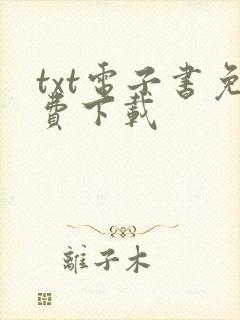 txt電子書免
費下載
離子木